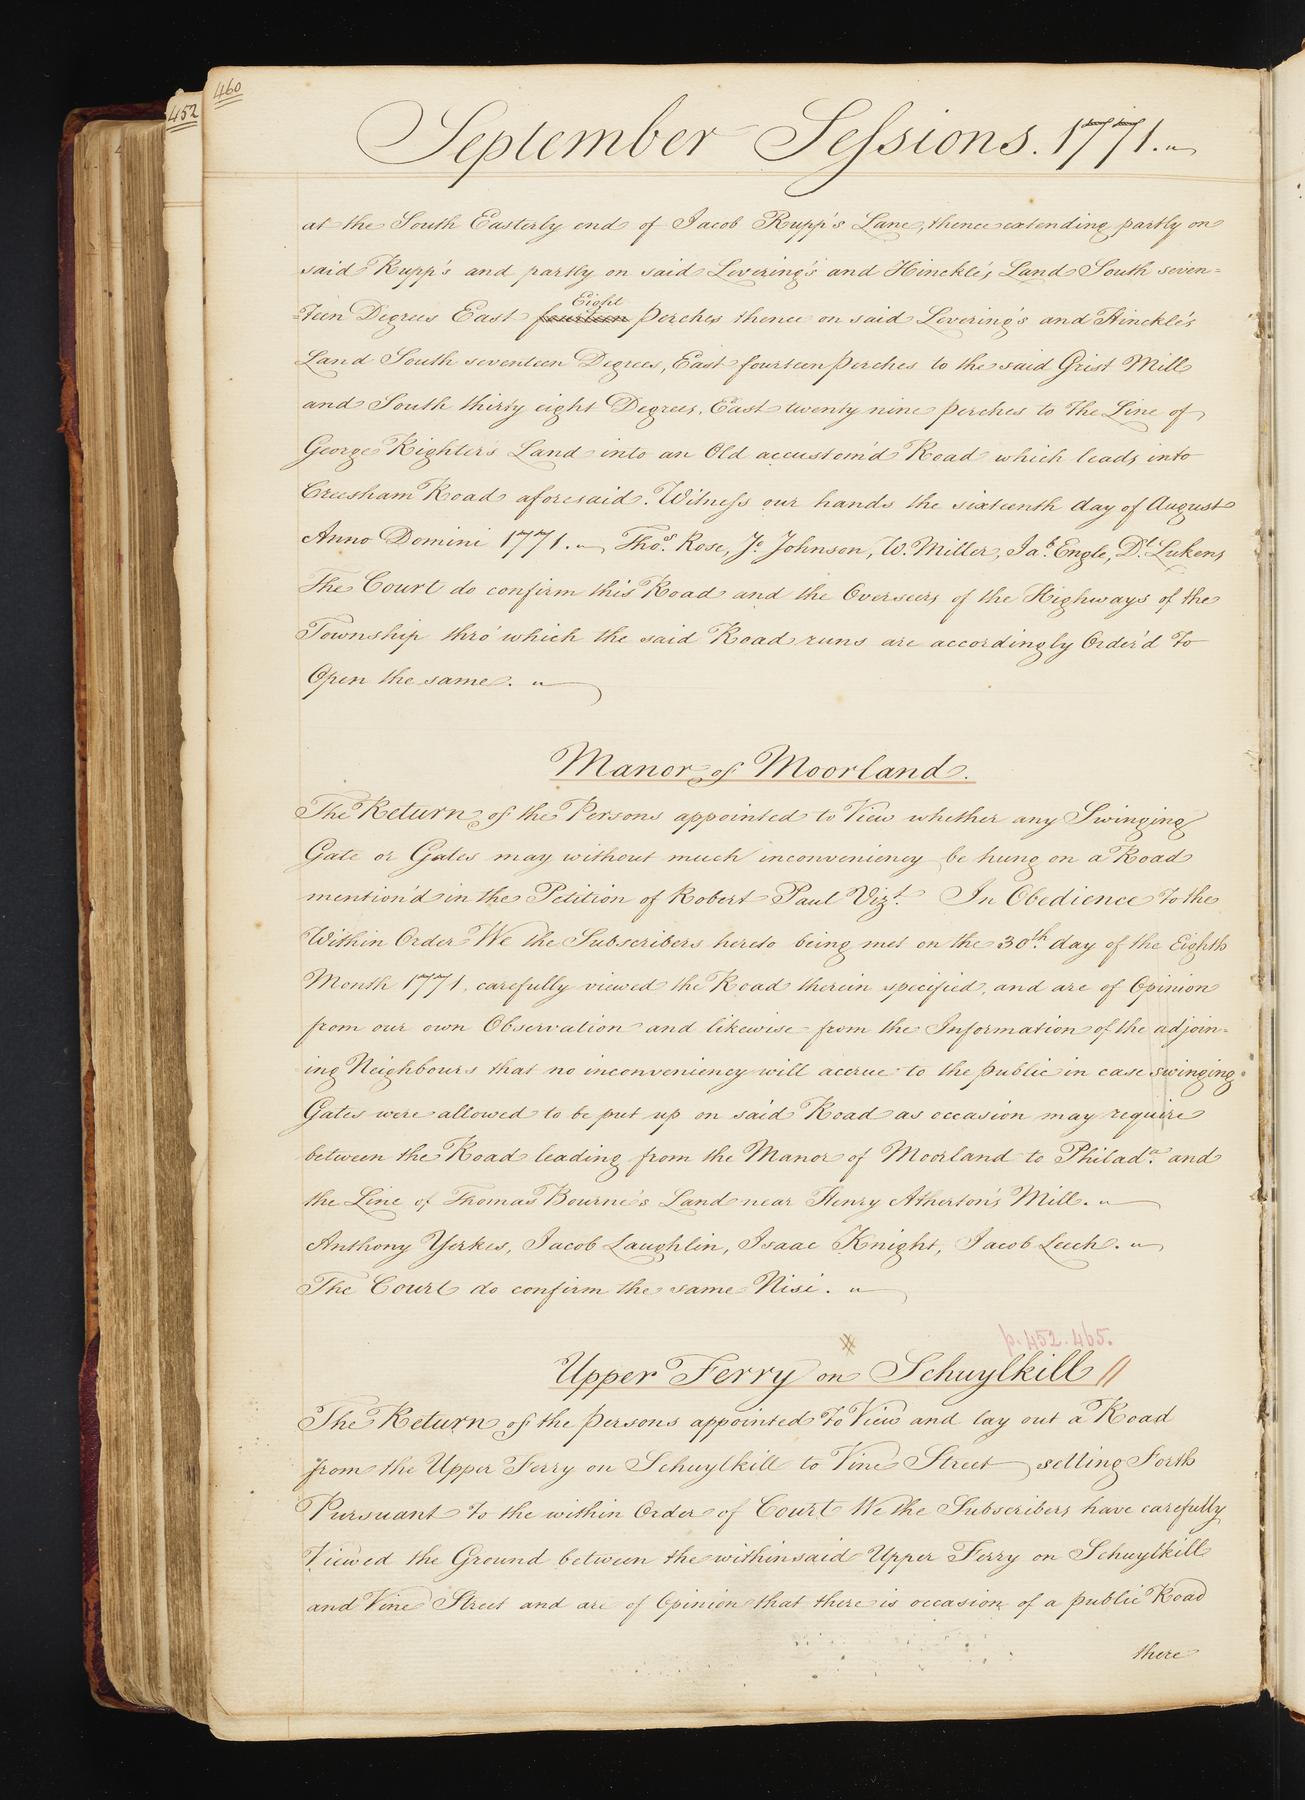 460
452
September Sessions. 1771.
at the South Easterly end of Jacob Rupp's Lane, thence extending partly on
said Rupp's and partly on said Levering's and Hinckle's Land South seven=
Eight
=teen Degrees East fourteen perches thence on said Levering's and Hinckle's
Land South seventeen Degrees, East fourteen perches to the said Grist Mill
and South thirty eight Degrees, East twenty nine perches to the Line of
George Righter's Land into an Old accustom'd Road which leads into
Creesham Road aforesaid. Witness our hands the sixteenth day of August
Anno Domini 1771. Thos. Rose, Jo. Johnson, W. Miller, Jab. Engle, Dl. Lukens
The Court do confirm this Road and the Overseers of the Highways of the
Township thro' which the said Road runs are accordingly Order'd to
Open the same.
Manor of Moorland.
The Return of the Persons appointed to View whether any Swinging
Gate or Gates may without much inconveniency be hung on a Road
mention'd in the Petition of Robert Paul Vizt. In Obedience to the
Within Order We the Subscribers hereto being met on the 30th. day of the Eighth
Month 1771, carefully viewed the Road therein specified, and are of Opinion
from our own Observation and likewise from the Information of the adjoin=
ing Neighbours that no inconveniency will accrue to the public in case swinging
Gates were allowed to be put up on said Road as occasion may require
between the Road leading from the Manor of Moorland to Philada. and
the Line of Thomas Bourne's Land near Henry Atherton's Mill.
Anthony Yerkes, Jacob Laughlin, Isaac Knight, Jacob Leech.
The Court do confirm the same Nisi.
p. 452. 465.
Upper Ferry on Schuylkill //
The Return of the persons appointed to View and lay out a Road
from the Upper Ferry on Schuylkill to Vine Street setting Forth
Pursuant to the within Order of Court We the Subscribers have carefully
Viewed the Ground between the withinsaid Upper Ferry on Schuylkill
and Vine Street and are of Opinion that there is occasion of a public Road
there